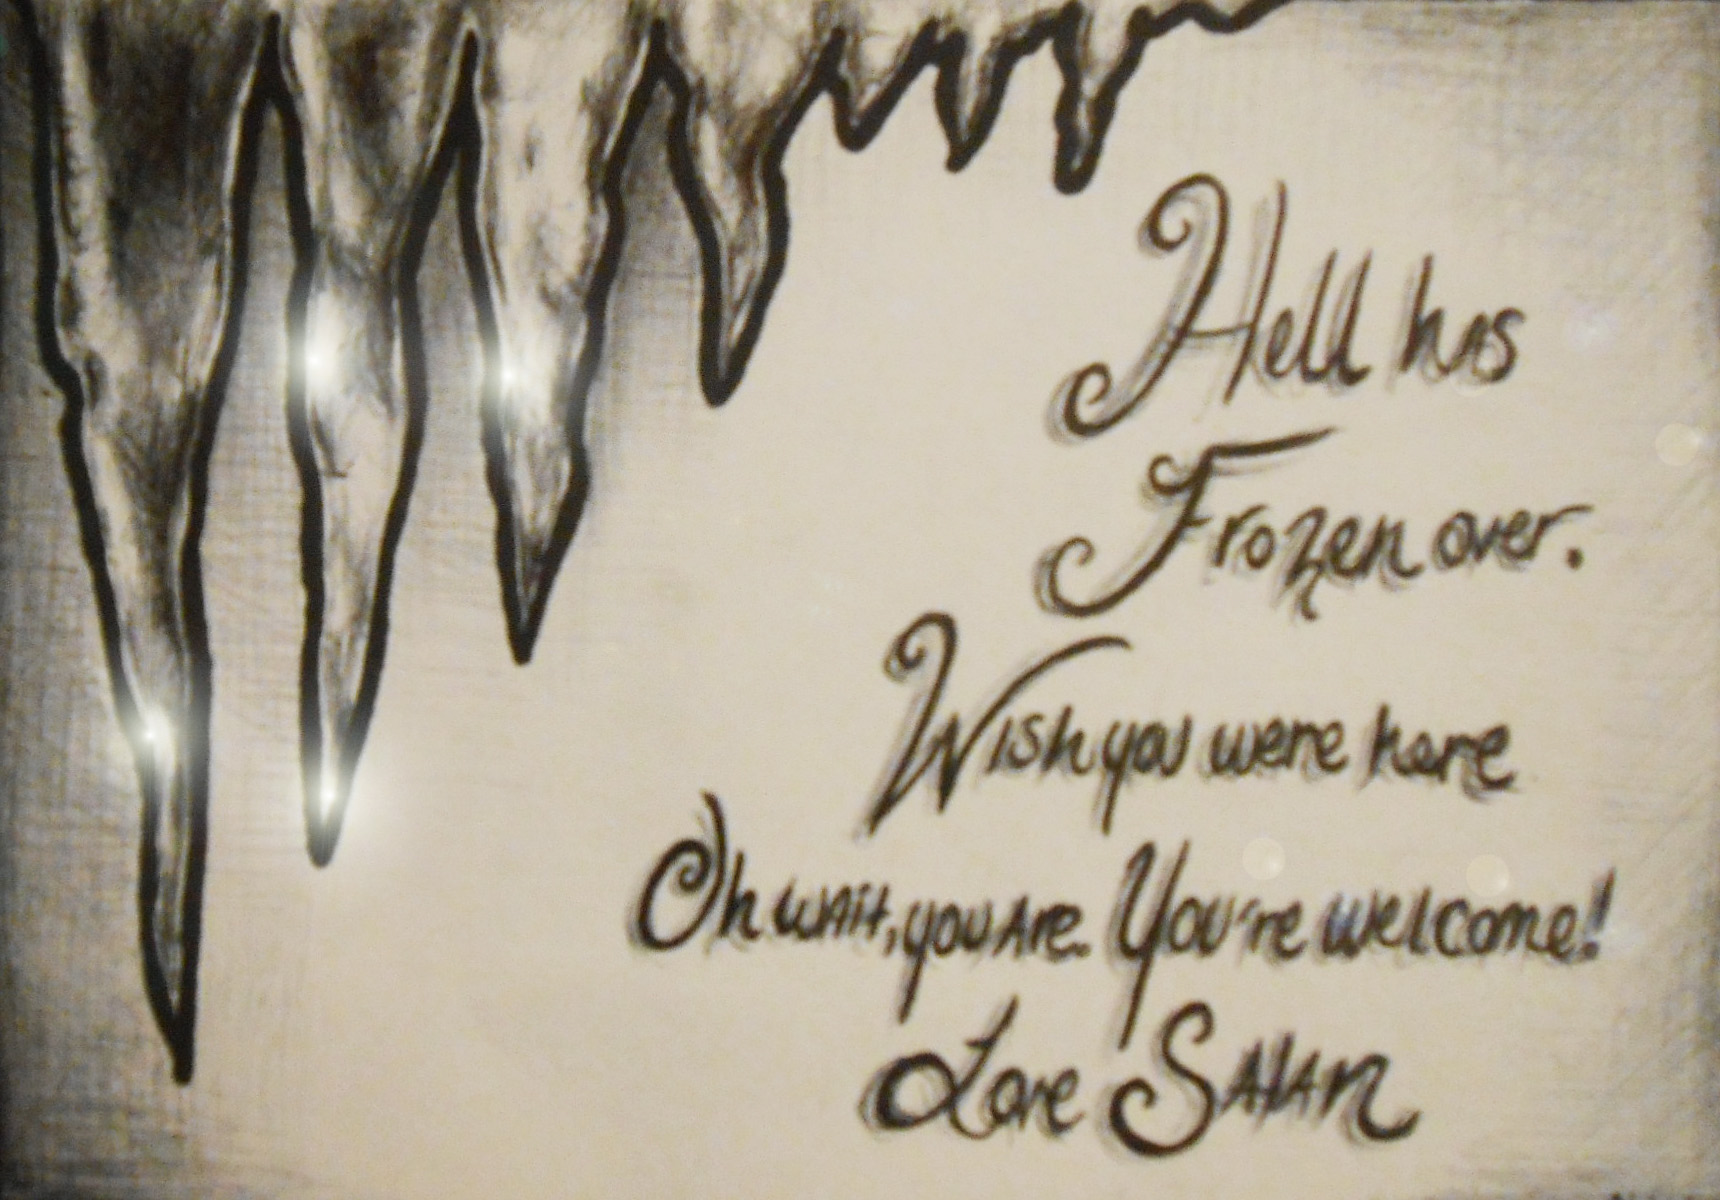 Hell has
Frozen over.
Wish you were here
Oh wait, you Are. You're welcome!
Love Satan